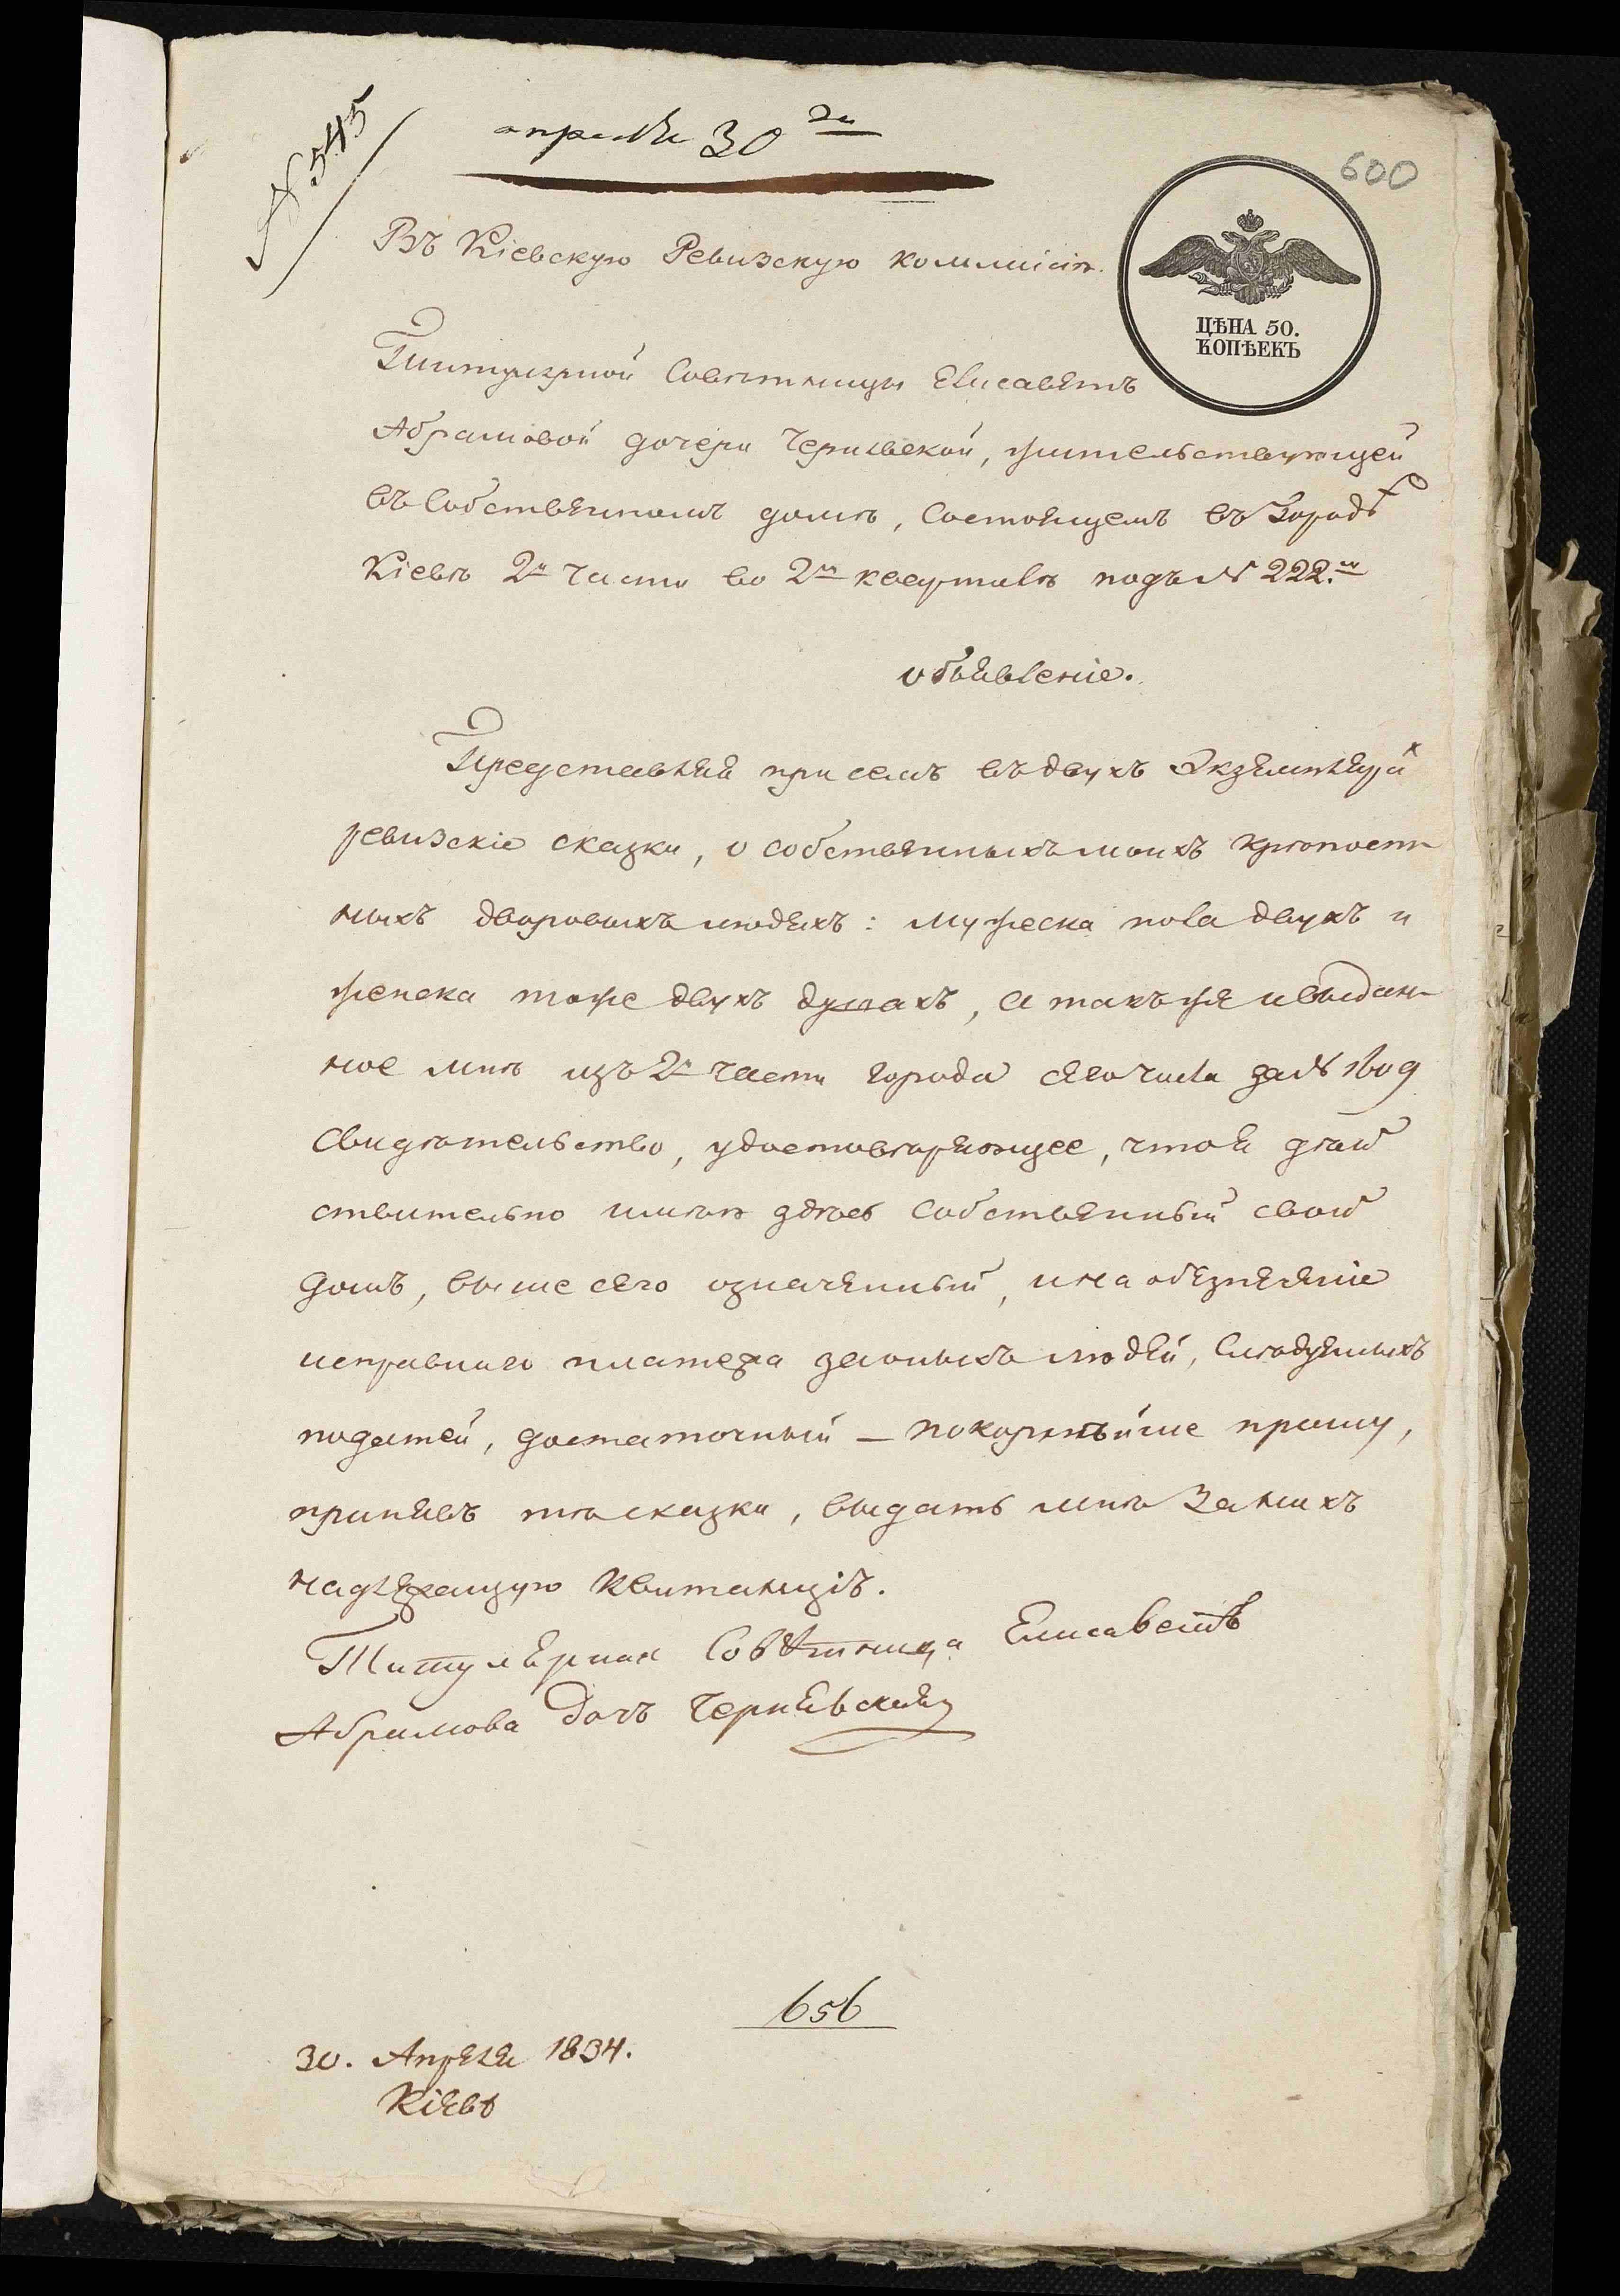 № 545
апреля 30 го
600
ЦѢНА 50.
КОПѢЕКЪ
Въ Кіевскую Ревизскую коммисію.
Титулярной Совѣтницы Елисаветъ
Абрамовой дочери Чернявской, жительствующей
въ собственномъ домѣ, состоящемъ въ Городѣ
Кіевѣ 2й Части во 2м кварталѣ подъ № 222.м
объявленіе.
Представляя при семъ въ двухъ Экземплярах
ревизскіе сказки, о собственныхъ моихъ крѣпост-
ныхъ дворовыхъ людяхъ: мужеска пола двухъ и
женска тоже двухъ душахъ, а такъ же и выдан-
ное мнѣ изъ 2й части города сего числа за № 1609
свидѣтельство, удостовѣряющее, что я дѣй
ствительно имѣю здѣсь собственный свой
домъ, выше сего означенный, и на обезпеченіе
исправнаго платежа за оныхъ людей, слѣдуемыхъ
податей, достаточный – покорнѣйше прошу,
принявъ тѣ сказки, выдать мнѣ за нихъ
надлежащую квитанцію.
Титулярная Совѣтница Елисаветъ
Абрамова дочь Чернявская
656
30. Апреля 1834.
Кіевъ